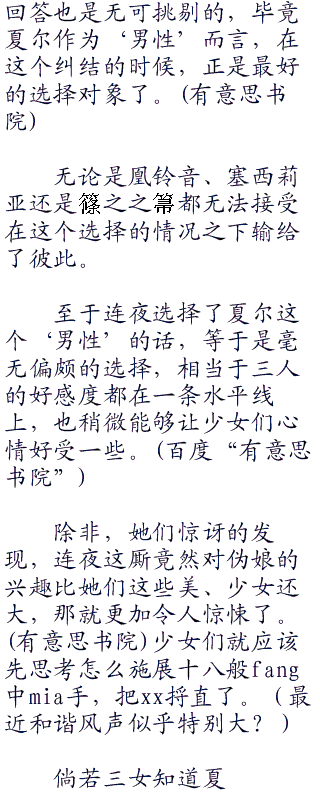 回答也是无可挑剔的，毕竟
夏尔作为‘男性’而言，在
这个纠结的时候，正是最好
的选择对象了。(有意思书
院)
无论是凰铃音、塞西莉
亚还是篠之之箒都无法接受
在这个选择的情况之下输给
了彼此。
至于连夜选择了夏尔这
个‘男性’的话，等于是毫
无偏颇的选择，相当于三人
的好感度都在一条水平线
上，也稍微能够让少女们心
情好受一些。(百度“有意思
书院”)
除非，她们惊讶的发
现，连夜这厮竟然对伪娘的
兴趣比她们这些美、少女还
大，那就更加令人惊悚了。
(有意思书院)少女们就应该
先思考怎么施展十八般fang
中mia手，把xx捋直了。（最
近和谐风声似乎特别大？）
倘若三女知道夏